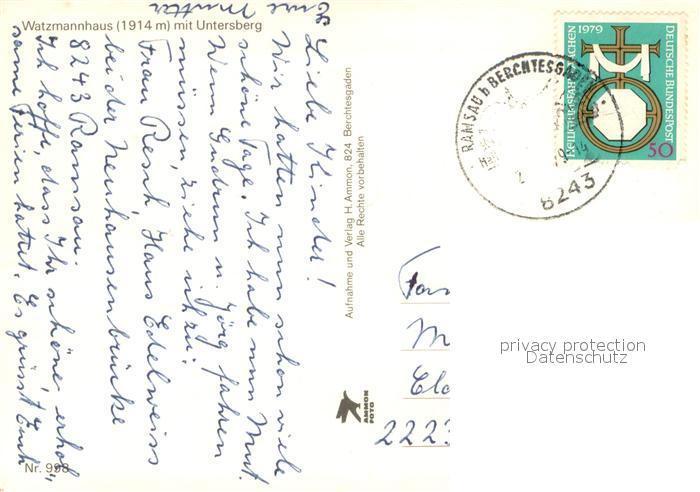 Watzmannhaus (1914 m) mit Untersberg
Liebe Kinder!
Wir hatten nun schon viele
schöne Tage. Ich habe nun Mut.
Wenn Gudrun u. Jörg fahren
müssen, ziehe ich zu:
Frau Resch Haus Edelweiss
bei der Neuhausenbrücke
8243 Ramsau.
Ich hoffe, dass Ihr schöne, erhol-
same Ferien hattet. Es grüsst Euch
Eure Mutter
Nr. 998
Aufnahme und Verlag H. Ammon, 824 Berchtesgaden
Alle Rechte vorbehalten
AMMON
FOTO
RAMSAU b BERCHTESGADEN
8243
1979
DEUTSCHE BUNDESPOST
50
Fam
M
Cla
2223
privacy protection
Datenschutz